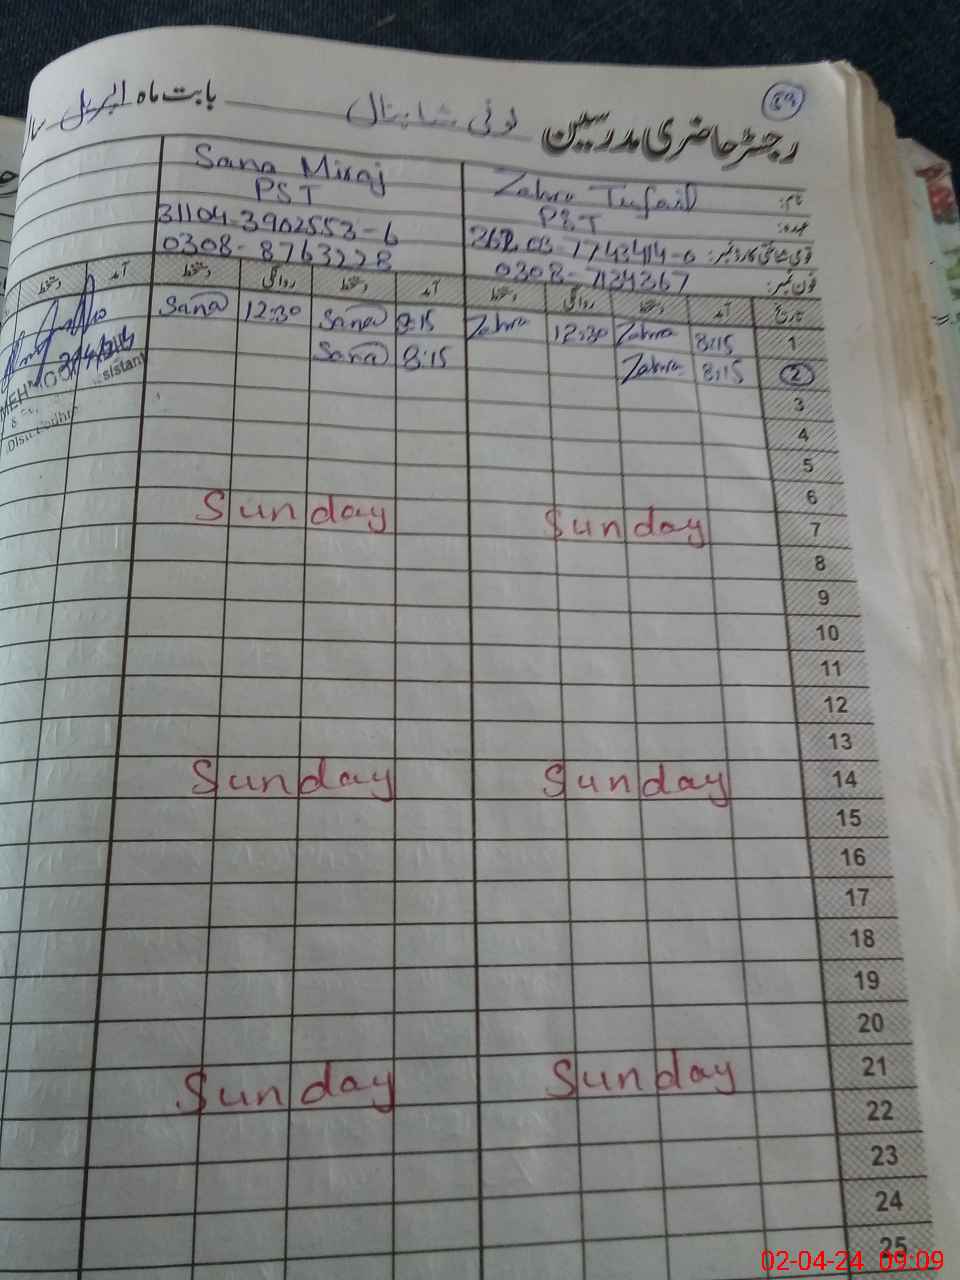 59
رجسٹر حاضری مدرسین
بابت ماہ اپریل
نام: Zahra Tufail Sana Miraj
عہدہ: PST PST
قومی شناختی کارڈ نمبر: 31104-3902553-6
فون نمبر: 0308-7124367 0308-8763228
تاریخ آمد دستخط روانگی دستخط آمد دستخط روانگی دستخط آمد دستخط
1 8:15 Zahra 12:30 Zahra 8:15 Sana 12:30 Sana
2 8:15 Zahra 8:15 Sana
3
4
5
6
7 Sunday Sunday
8
9
10
11
12
13
14 Sunday Sunday
15
16
17
18
19
20
21 Sunday Sunday
22
23
24
25
02-04-24 09:09